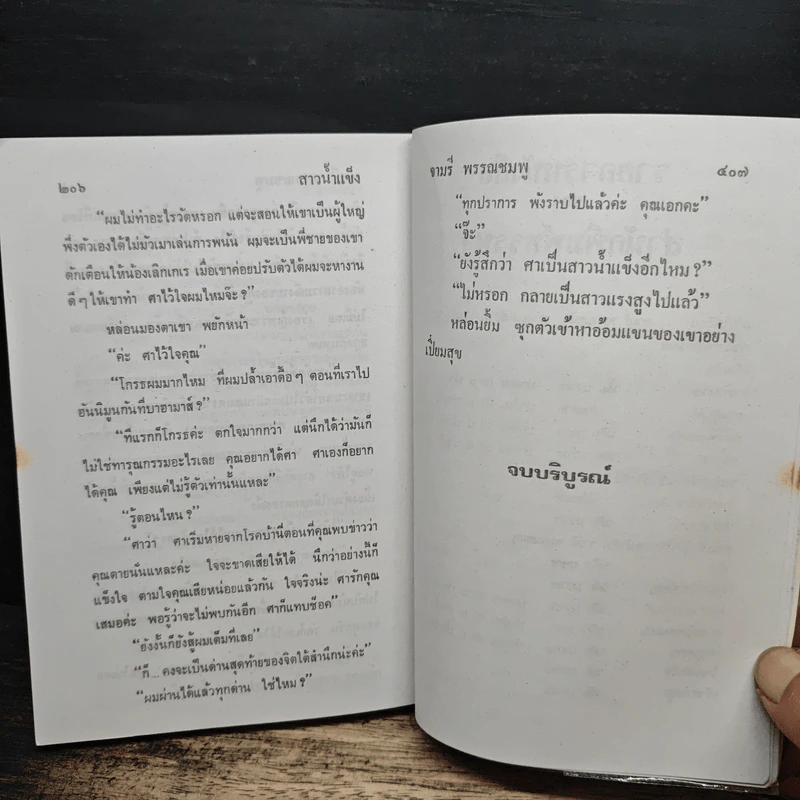 ๒๐๖
สาวน้ำแข็ง
“ผมไม่ทำอะไรวัดหรอก แต่จะสอนให้เขาเป็นผู้ใหญ่
พึ่งตัวเองได้ไม่มัวเมาเล่นการพนัน ผมจะเป็นพี่ชายของเขา
ตักเตือนให้น้องเลิกเกเร เมื่อเขาค่อยปรับตัวได้ผมจะหางาน
ดีๆ ให้เขาทำ ศาไว้ใจผมไหมจ๊ะ?”
หล่อนมองตาเขา พยักหน้า
“ค่ะ ศาไว้ใจคุณ”
“โกรธผมมากไหม ที่ผมปล้ำเอาดื้อๆ ตอนที่เราไป
ฮันนิมูนกันที่บาฮามาส์?”
“ทีแรกก็โกรธค่ะ ตกใจมากกว่า แต่นึกได้ว่ามันก็
ไม่ใช่ทารุณกรรมอะไรเลย คุณอยากได้ศา ศาเองก็อยาก
ได้คุณ เพียงแต่ไม่รู้ตัวเท่านั้นแหละ”
“รู้ตอนไหน?”
“ศาว่า ศาเริ่มหายจากโรคบ้านี่ตอนที่คุณพบข่าวว่า
คุณตายนั่นแหละค่ะ ใจจะขาดเสียให้ได้ นึกว่าอย่างนี้ก็
แข็งใจ ตามใจคุณเสียหน่อยแล้วกัน ใจจริงน่ะ ศารักคุณ
เสมอค่ะ พอรู้ว่าจะไม่พบกันอีก ศาก็แทบช็อค”
“ยังงั้นก็ยังสู้ผมเต็มที่เลย”
“ก็...คงจะเป็นด่านสุดท้ายของจิตใต้สำนึกน่ะค่ะ”
“ผมผ่านได้แล้วทุกด่าน ใช่ไหม?”
จามรี พรรณชมพู
๔๐๗
“ทุกปราการ พังราบไปแล้วค่ะ คุณเอกคะ”
“จ๊ะ”
“ยังรู้สึกว่า ศาเป็นสาวน้ำแข็งอีกไหม?”
“ไม่หรอก กลายเป็นสาวแรงสูงไปแล้ว”
หล่อนยิ้ม ซุกตัวเข้าหาอ้อมแขนของเขาอย่าง
เปี่ยมสุข
จบบริบูรณ์